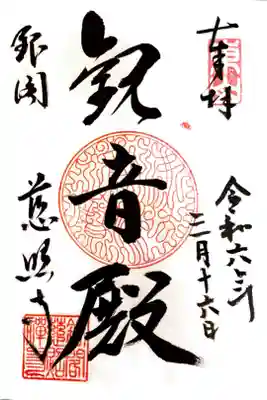 奉拝
令和六年
三月十六日
観音殿
銀閣
慈照寺